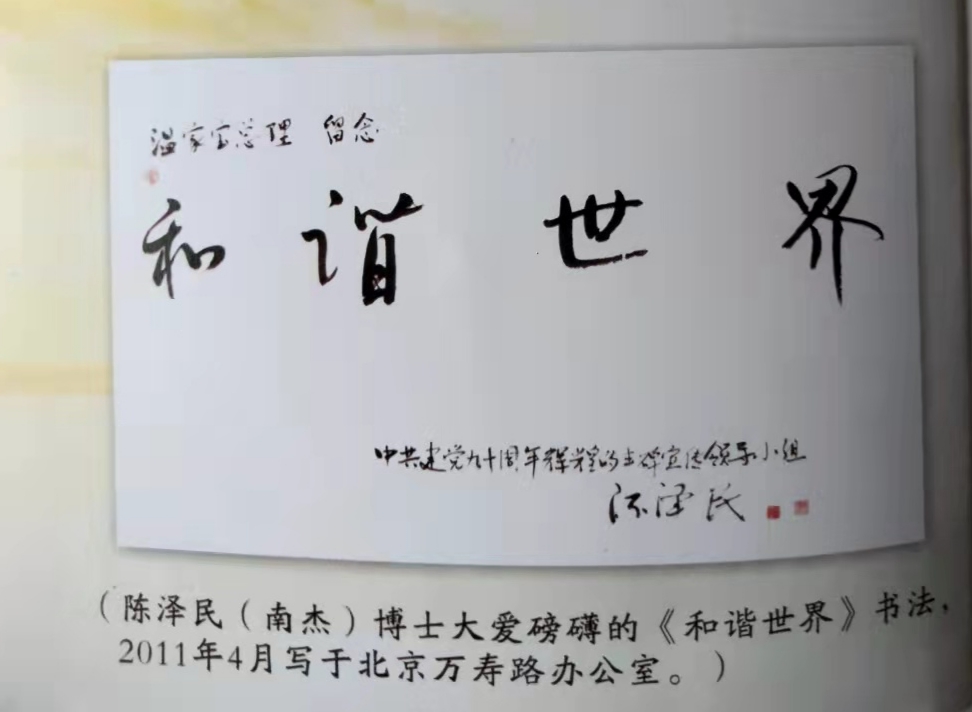 温家宝总理 留念
和谐世界
中共建党九十周年辉煌的主碑宣传领导小组
陈泽民
(陈泽民(南杰)博士大爱磅礴的《和谐世界》书法,
2011年4月写于北京万寿路办公室。)